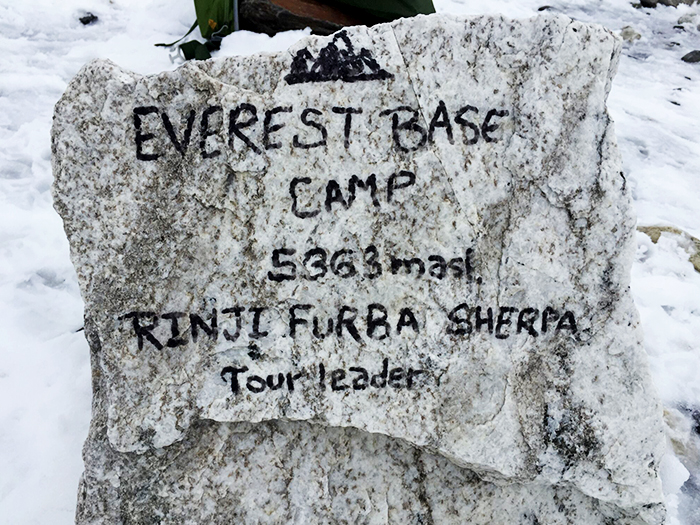 EVEREST BASE
CAMP
5363 masl
RINJI FURBA SHERPA
Tour leader